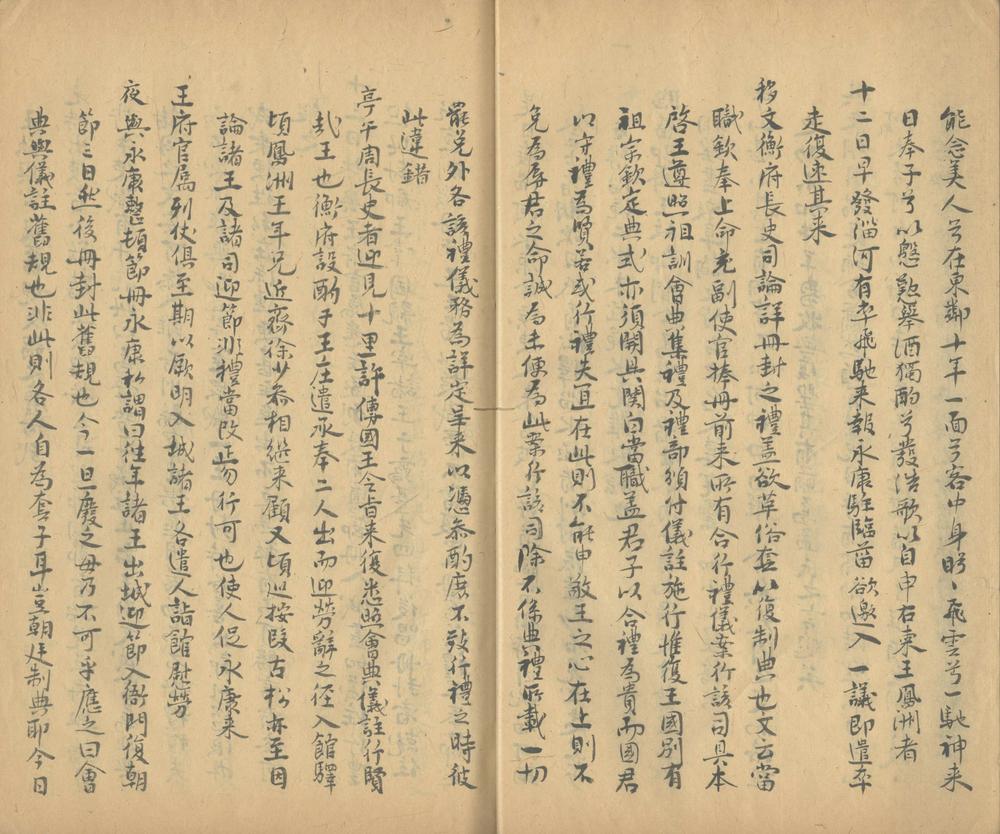 能念美人兮在東鄰十年一面兮客中身盻〻飛雲兮一馳神来
日奉子兮以慇懃舉酒獨酌兮發浩歌以自申右柬王鳳洲者
十二日早發淄河有卒飛馳来報永康駐臨菑欲邀入一議即遣卒
走復速其来
移文衡府長史司論詳冊封之禮盖欲革俗套以復制典也文云當
職欽奉上命充副使官捧冊前来所有合行禮儀案行該司具本
啓王遵照祖訓會典集禮及禮部頒付儀註施行惟復王國別有
祖宗欽定典式亦須開具関白當職盖君子以合禮為貴而國君
以守禮為賢若或行禮失宜在此則不能申敬王之心在上則不
免為辱君之命誠為未便為此案行該司除不係典禮所載一切
罷免外各該禮儀務為詳定呈来以憑叅酌庶不致行禮之時彼
此違錯
亭午周長史者迎見十里許傳國王令旨来復悉照會典儀註行賢
哉王也衡府設酌于王庄遣承奉二人出而迎勞辭之径入館驛
頃鳳洲王年兄近齋徐少叅相繼来顧又頃巡按段古松亦至因
論諸王及諸司迎節非禮當改正勿行可也使人促永康来
王府官属列伎俱至期以厥明入城諸王各遣人詣館慰勞
夜與永康整頓節冊永康私謂曰往年諸王出城迎節入衙門復朝
節三日然後冊封此舊規也今一旦廢之毋乃不可乎應之曰會
典與儀註舊規也非此則各人自為套子耳豈朝廷制典耶今日